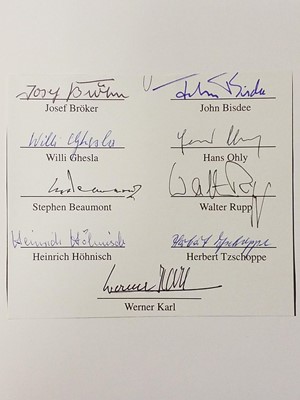 Josef Bröker John Bisdee
Josef Bröker John Bisdee
Willi Ghesla
Willi Ghesla Hans Ohly
Walter Rupp
Stephen Beaumont Walter Rupp
Heinrich Höhnisch Herbert Tzschoppe
Heinrich Höhnisch Herbert Tzschoppe
Werner Karl
Werner Karl